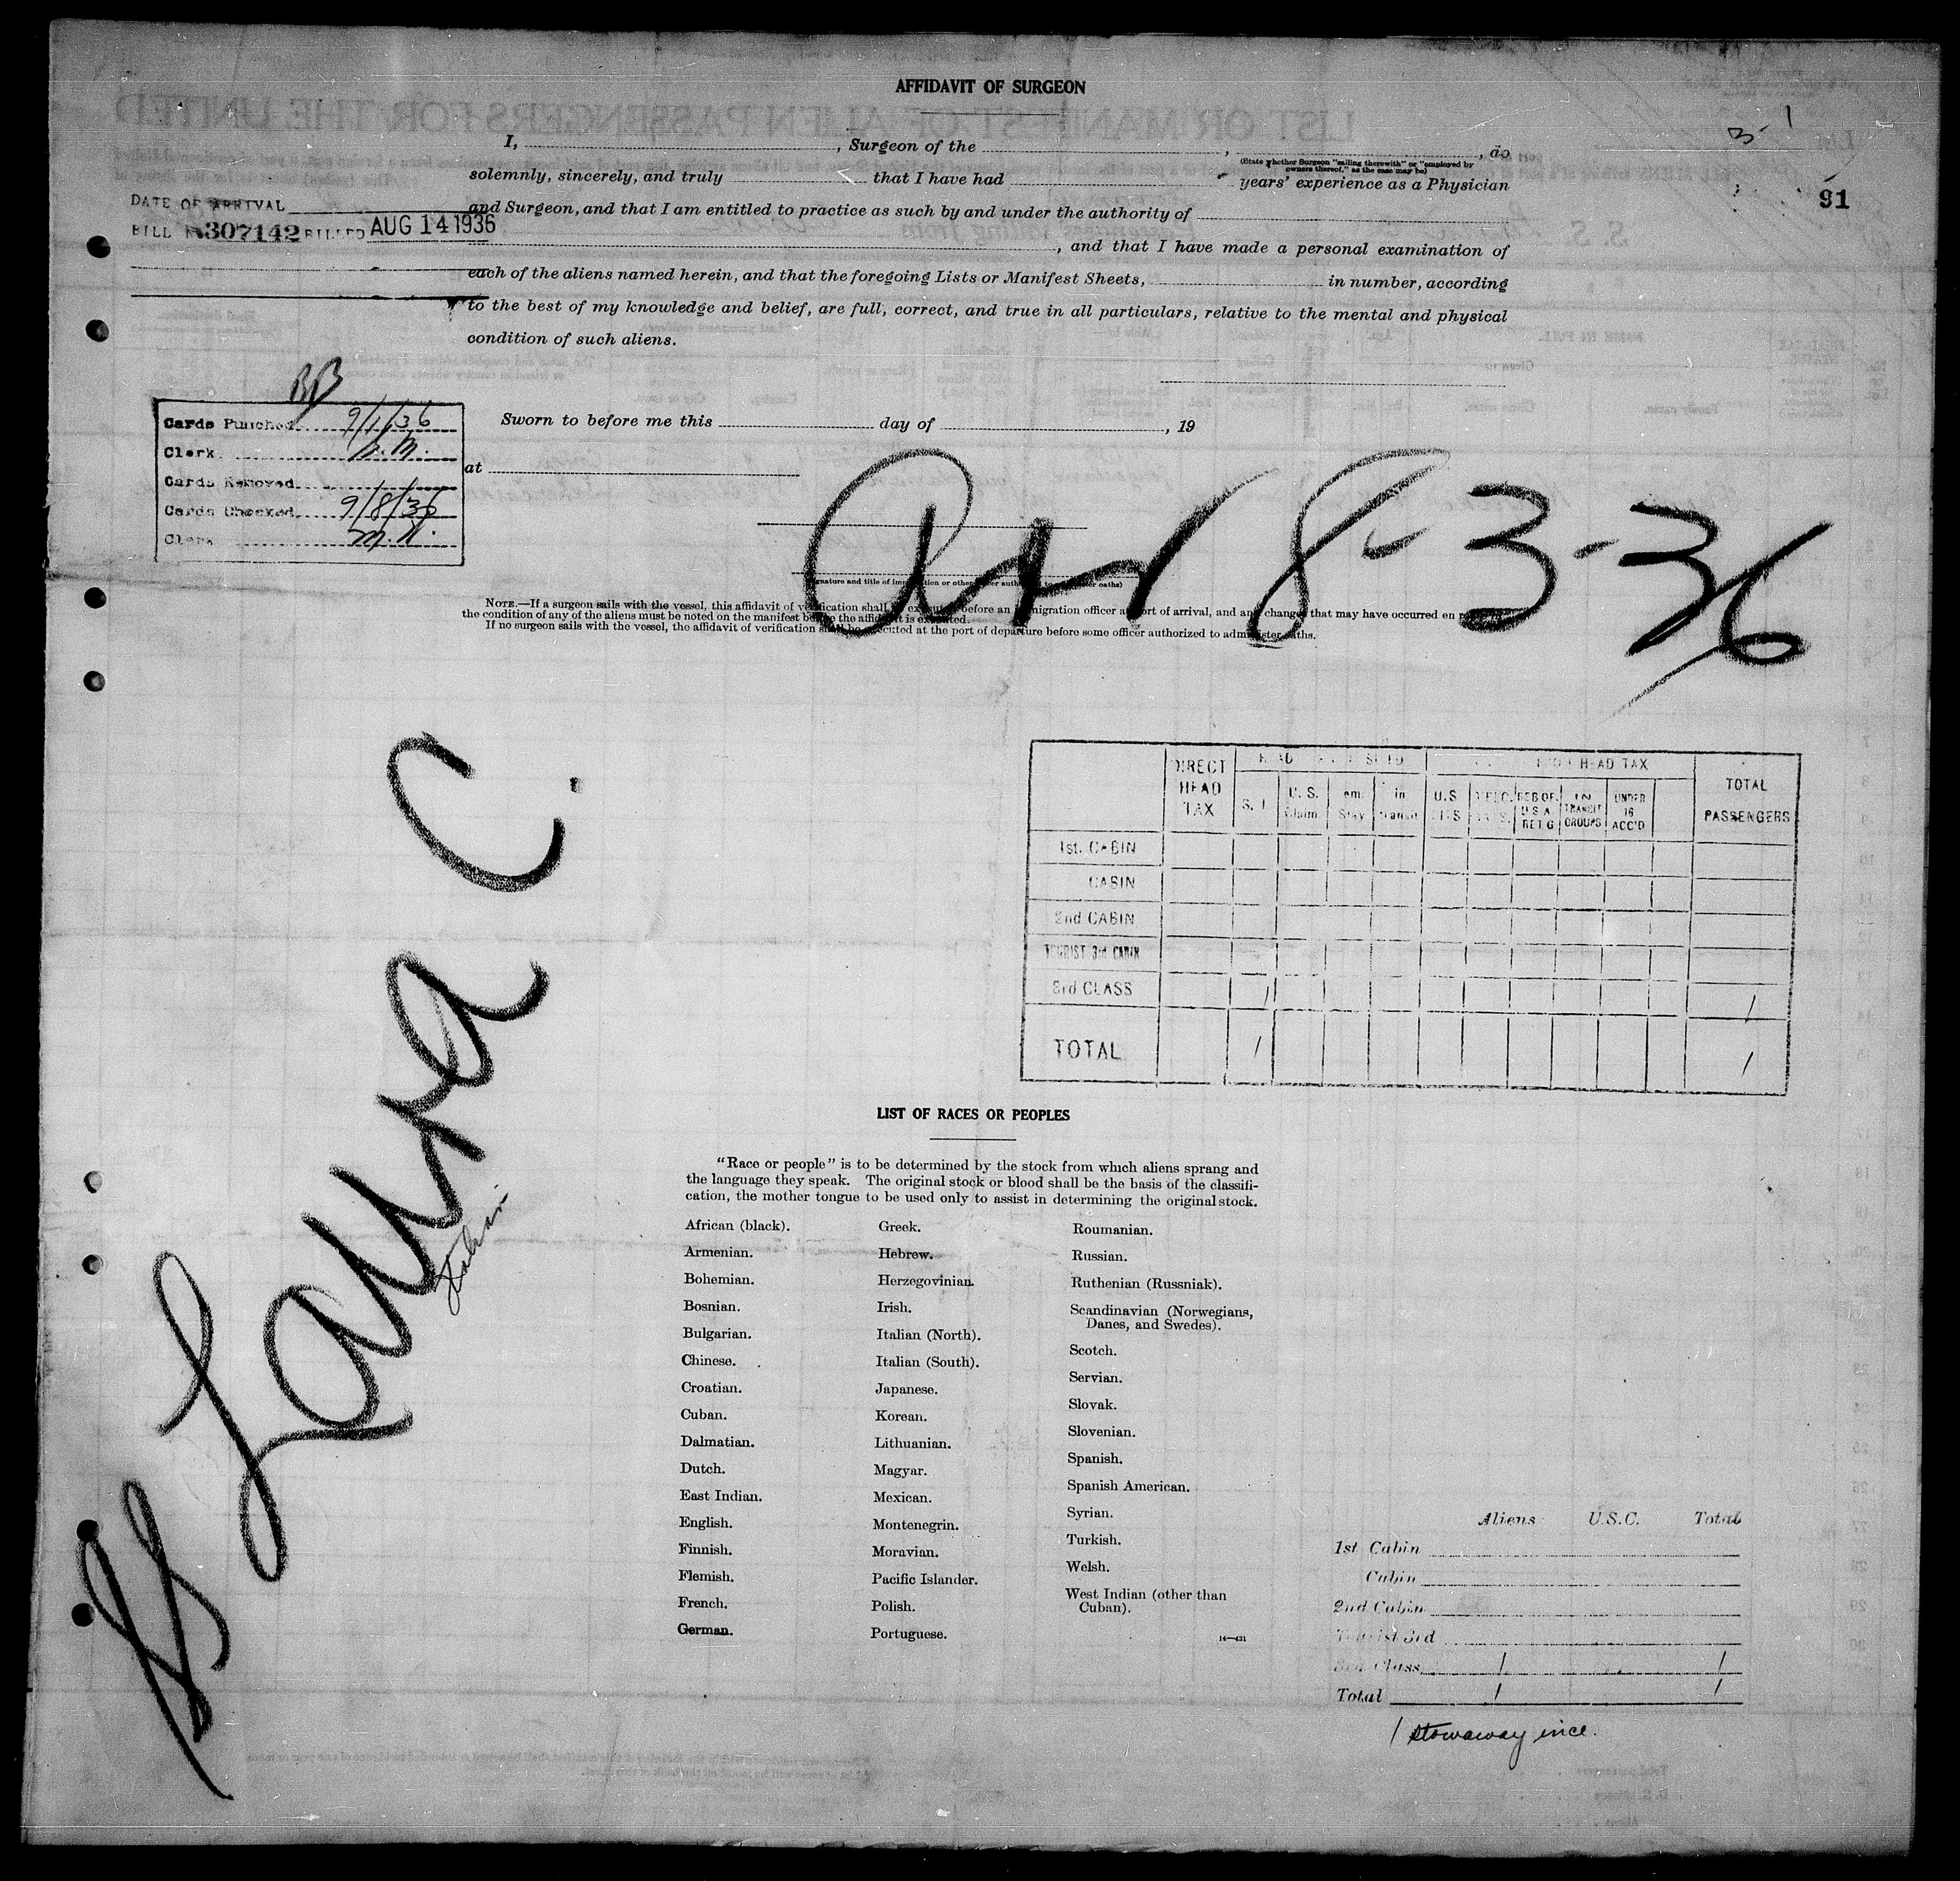 AFFIDAVIT OF SURGEON
3 1
91
I, , Surgeon of the , , do
(State whether Surgeon "sailing therewith" or "employed by owners thereof," as the case may be)
solemnly, sincerely, and truly that I have had years' experience as a Physician
and Surgeon, and that I am entitled to practice as such by and under the authority of
, and that I have made a personal examination of
each of the aliens named herein, and that the foregoing Lists or Manifest Sheets, in number, according
to the best of my knowledge and belief, are full, correct, and true in all particulars, relative to the mental and physical
condition of such aliens.
DATE OF ARRIVAL
BILL 307142 BILLED AUG 14 1936
BB
Cards Punched 9/1/36
Clerk
Cards Removed
Cards Checked 9/8/36
Clerk M.K.
Sworn to before me this day of , 19
at
Arr 8-3-36
NOTE.—If a surgeon sails with the vessel, this affidavit of verification shall be executed before an immigration officer at port of arrival, and any changes that may have occurred en
the condition of any of the aliens must be noted on the manifest before the affidavit is executed.
If no surgeon sails with the vessel, the affidavit of verification shall be executed at the port of departure before some officer authorized to administer oaths.
SS Laura C.
Italian
DIRECT HEAD TAX
HEAD TAX
TOTAL PASSENGERS
S. I. U. S. Claim
in transit
U.S
IN TRANSIT GROUPS
UNDER 16 ACC'D
1st. CABIN
CABIN
2nd CABIN
TOURIST 3rd CABIN
3rd CLASS 1 1
TOTAL 1 1
LIST OF RACES OR PEOPLES
"Race or people" is to be determined by the stock from which aliens sprang and
the language they speak. The original stock or blood shall be the basis of the classifi-
cation, the mother tongue to be used only to assist in determining the original stock.
African (black).
Armenian.
Bohemian.
Bosnian.
Bulgarian.
Chinese.
Croatian.
Cuban.
Dalmatian.
Dutch.
East Indian.
English.
Finnish.
Flemish.
French.
German.
Greek.
Hebrew.
Herzegovinian.
Irish.
Italian (North).
Italian (South).
Japanese.
Korean.
Lithuanian.
Magyar.
Mexican.
Montenegrin.
Moravian.
Pacific Islander.
Polish.
Portuguese.
Roumanian.
Russian.
Ruthenian (Russniak).
Scandinavian (Norwegians,
Danes, and Swedes).
Scotch.
Servian.
Slovak.
Slovenian.
Spanish.
Spanish American.
Syrian.
Turkish.
Welsh.
West Indian (other than
Cuban).
14—431
Aliens U.S.C. Total
1st Cabin
Cabin
2nd Cabin
Tourist 3rd
3rd Class 1 1
Total 1 1
1 stowaway incl.